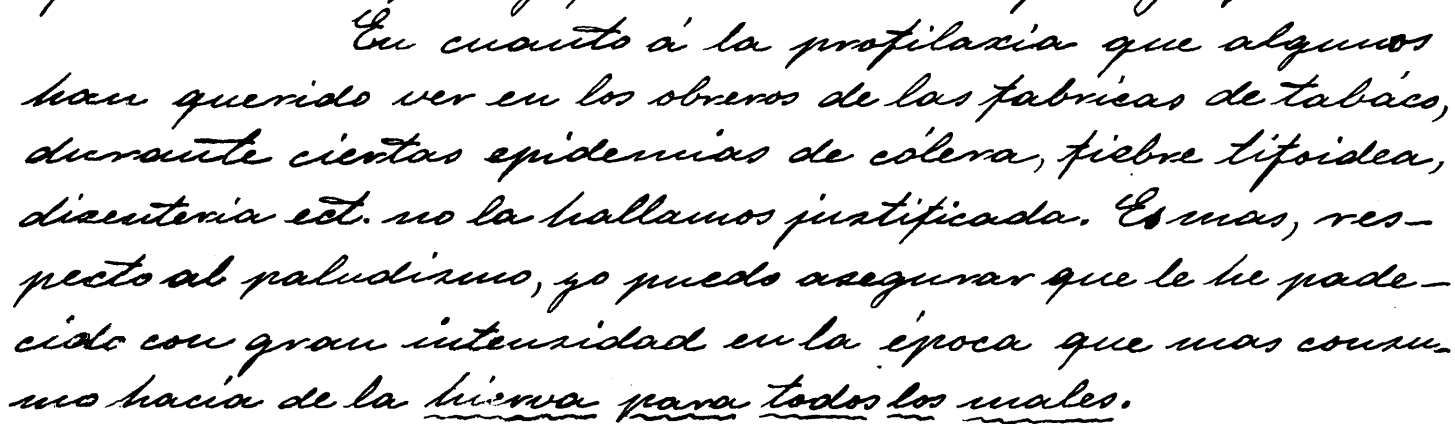 En cuanto á la profilaxia que algunos
han querido ver en los obreros de las fabricas de tabáco,
durante ciertas epidemias de cólera, fiebre tifoidea,
disenteria ect. no la hallamos justificada. Es mas, res-
pecto al paludismo, yo puedo asegurar que le he pade-
cido con gran intensidad en la época que mas consu-
mo hacía de la hierva para todos los males.